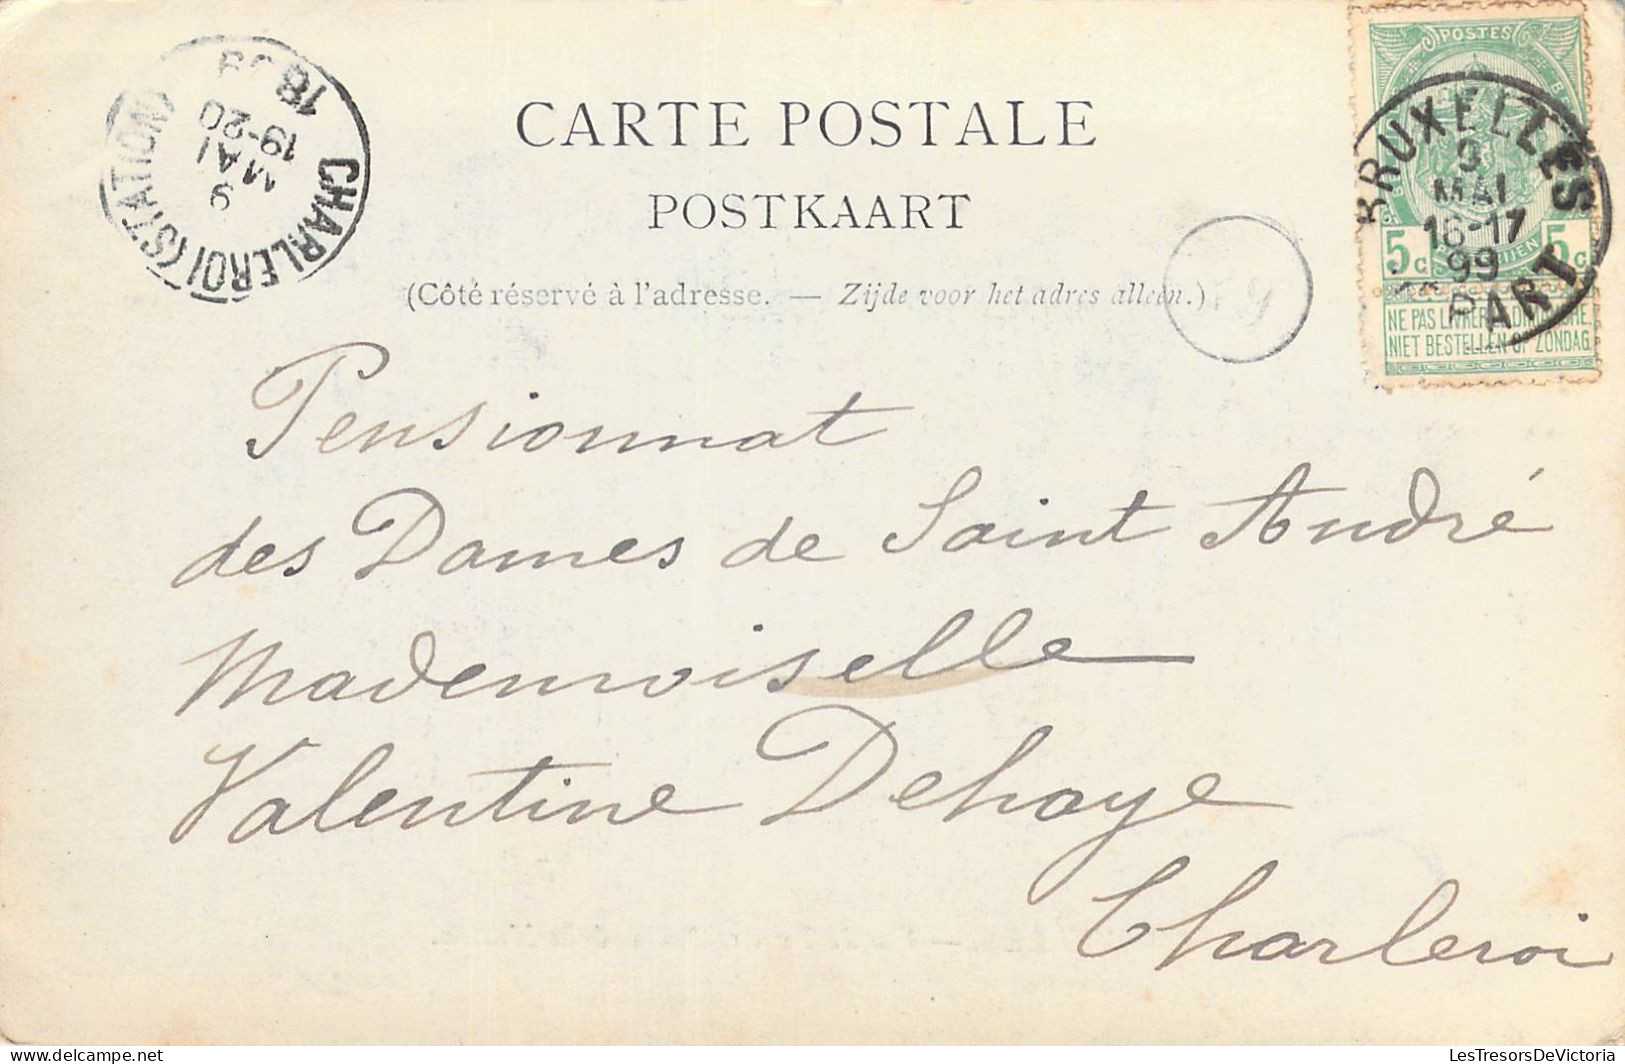 CARTE POSTALE
POSTKAART
(Côté réservé à l'adresse. — Zijde voor het adres alleen.)
CHARLEROI (STATION)
9
MAI
19-20
18
POSTES
5c 5c
NE PAS LIVRER LE DIMANCHE.
NIET BESTELLEN OP ZONDAG
BRUXELLES
9
MAI
16-17
99
PART
Pensionnat
des Dames de Saint André
Mademoiselle
Valentine Dehaye
Charleroi
Delcampe.net
LesTresorsDeVictoria